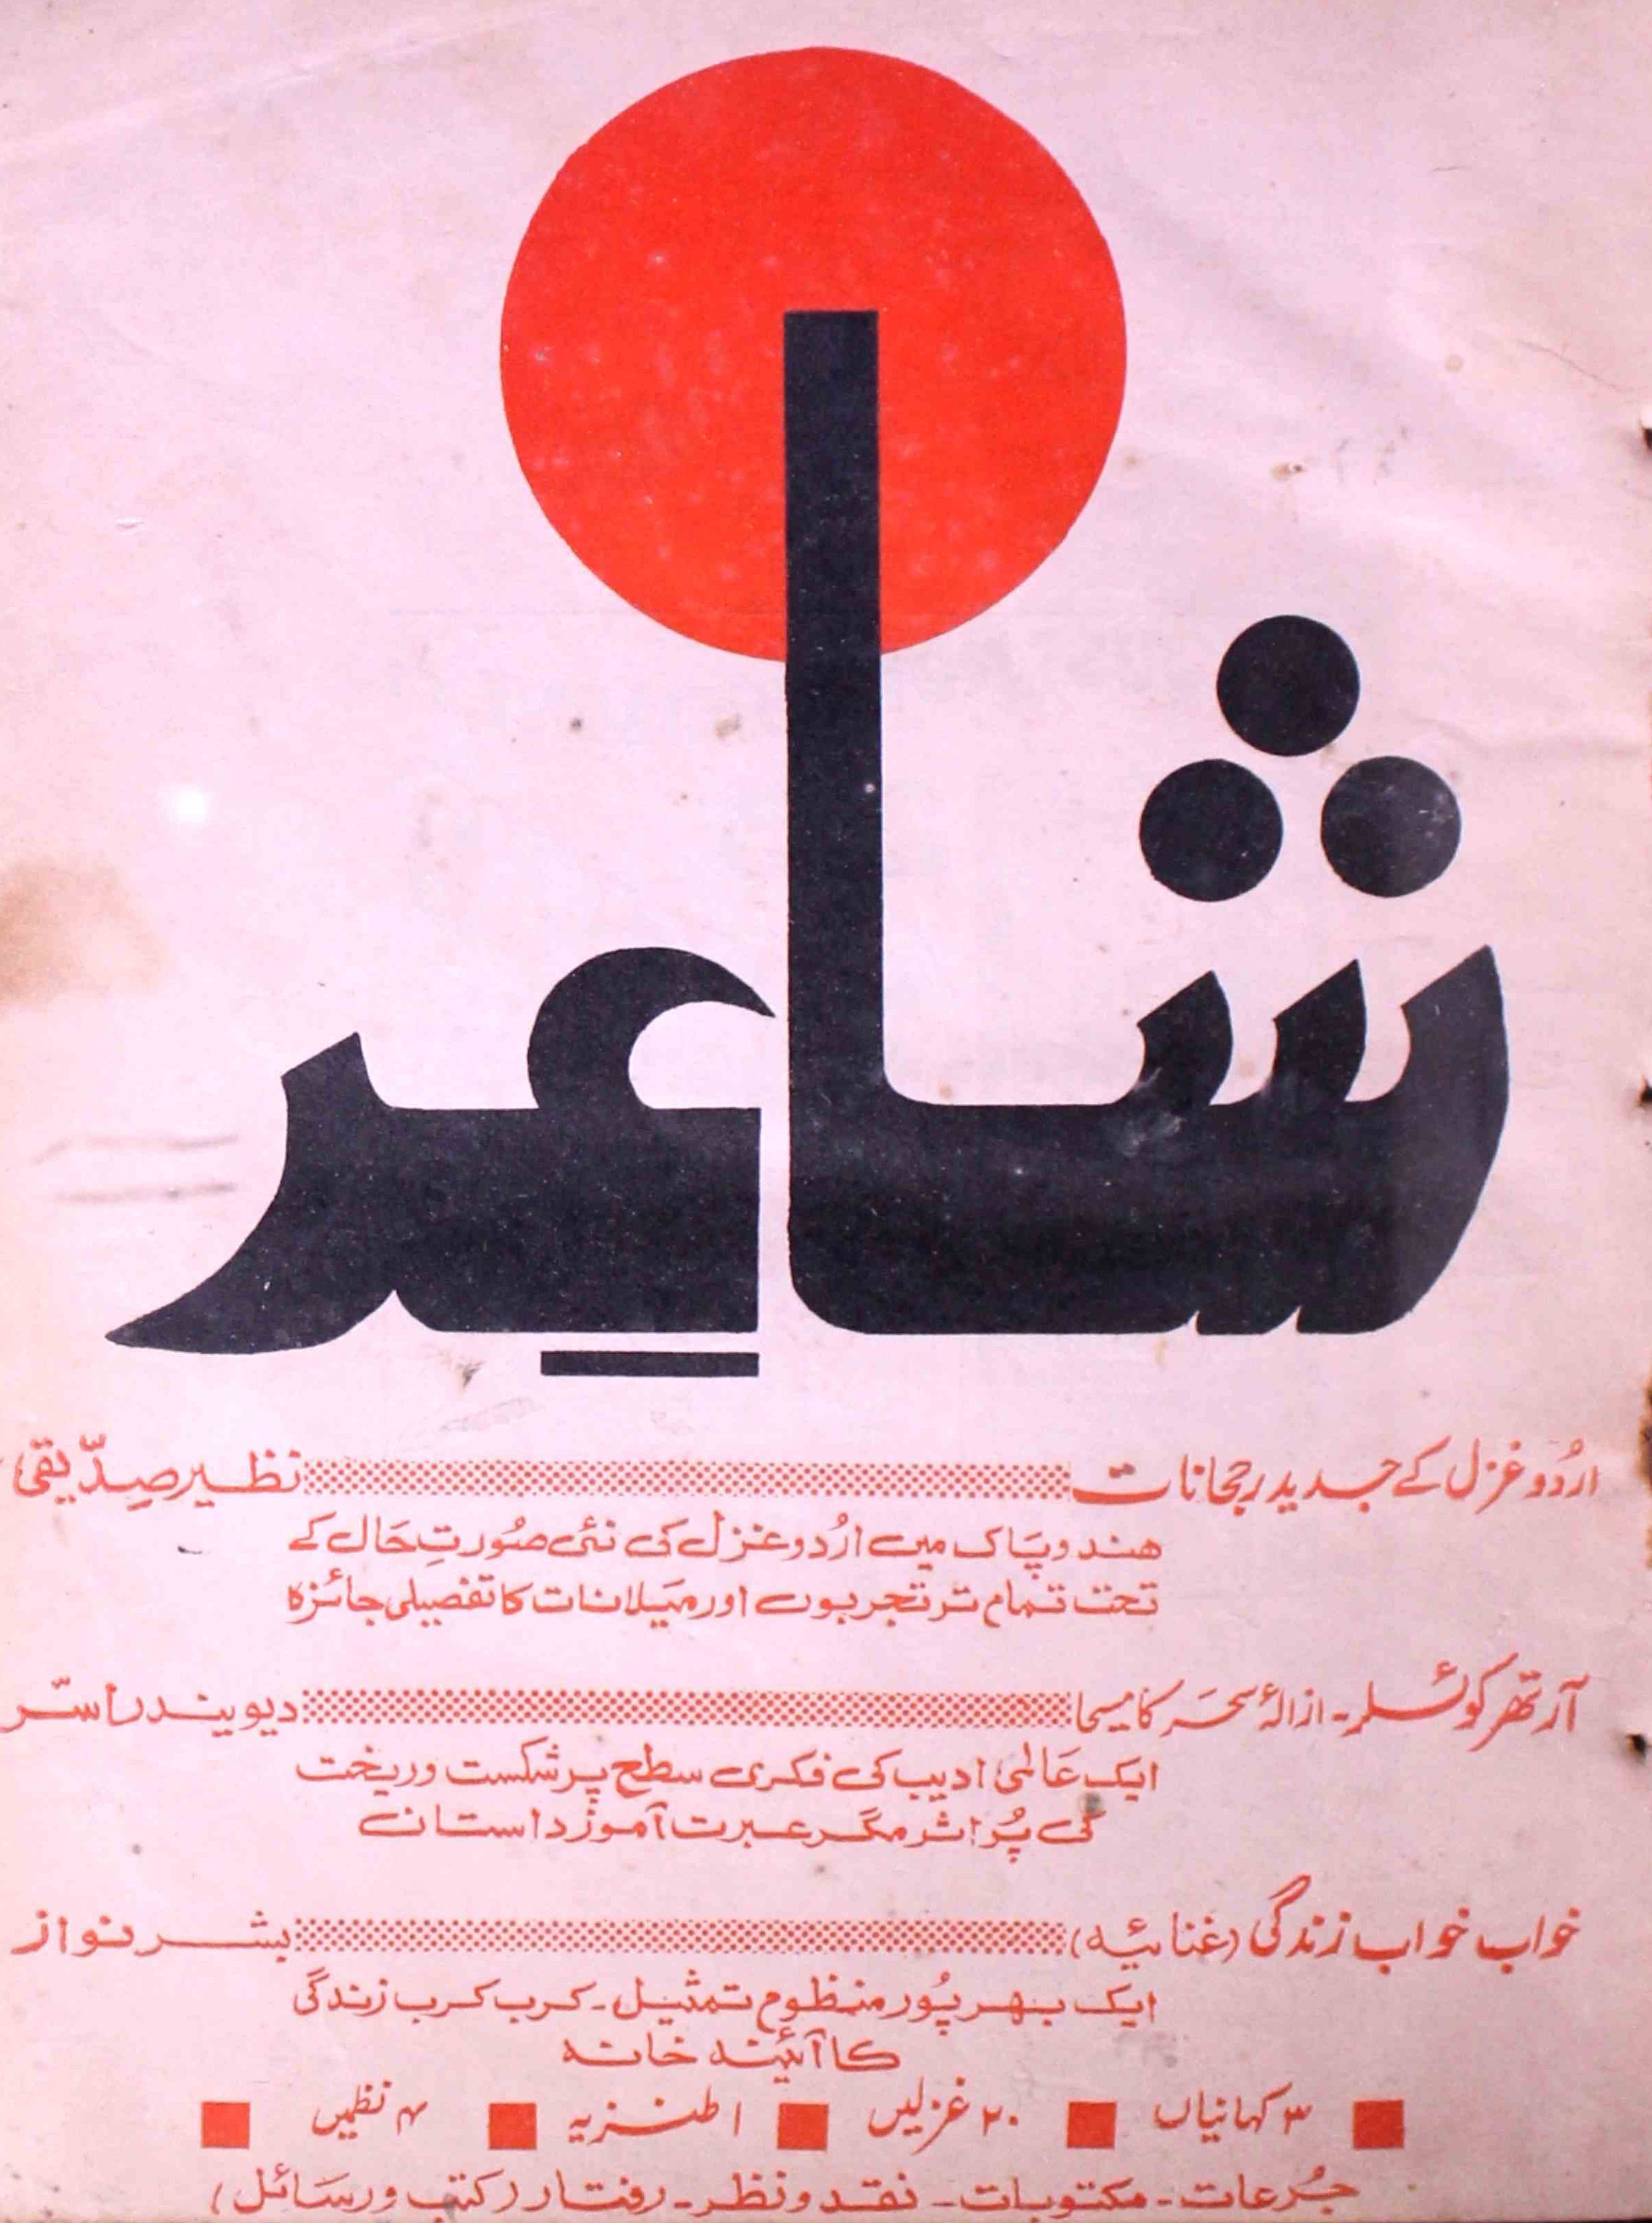 شاعِر
اردُو غزل کے جدید رجحانات نظیر صدّیقی
ہند و پاک میں اردُو غزل کی نئی صُورتِ حَال کے
تحت تمام تر تجربوں اور میَلانات کا تفصیلی جائزہ
آرتھر کوئسلر۔ ازالۂ سحَر کا مسیحا دیویندر اسّر
ایک عَالمی ادیب کی فکری سطح پر شکست و ریخت
کی پُر اثر مگر عبرت آموز داستان
خواب خواب زندگی (غنائیہ) بشر نواز
ایک بھر پُور منظوم تمثیل۔ کرب کرب زندگی
کا آئینہ خانہ
۳ کہانیاں ۲۰ غزلیں ۱ طنزیہ ۴ نظمیں
جُرعات۔ مکتوبات۔ نقد و نظر۔ رفتار (کتب و رسَائل)